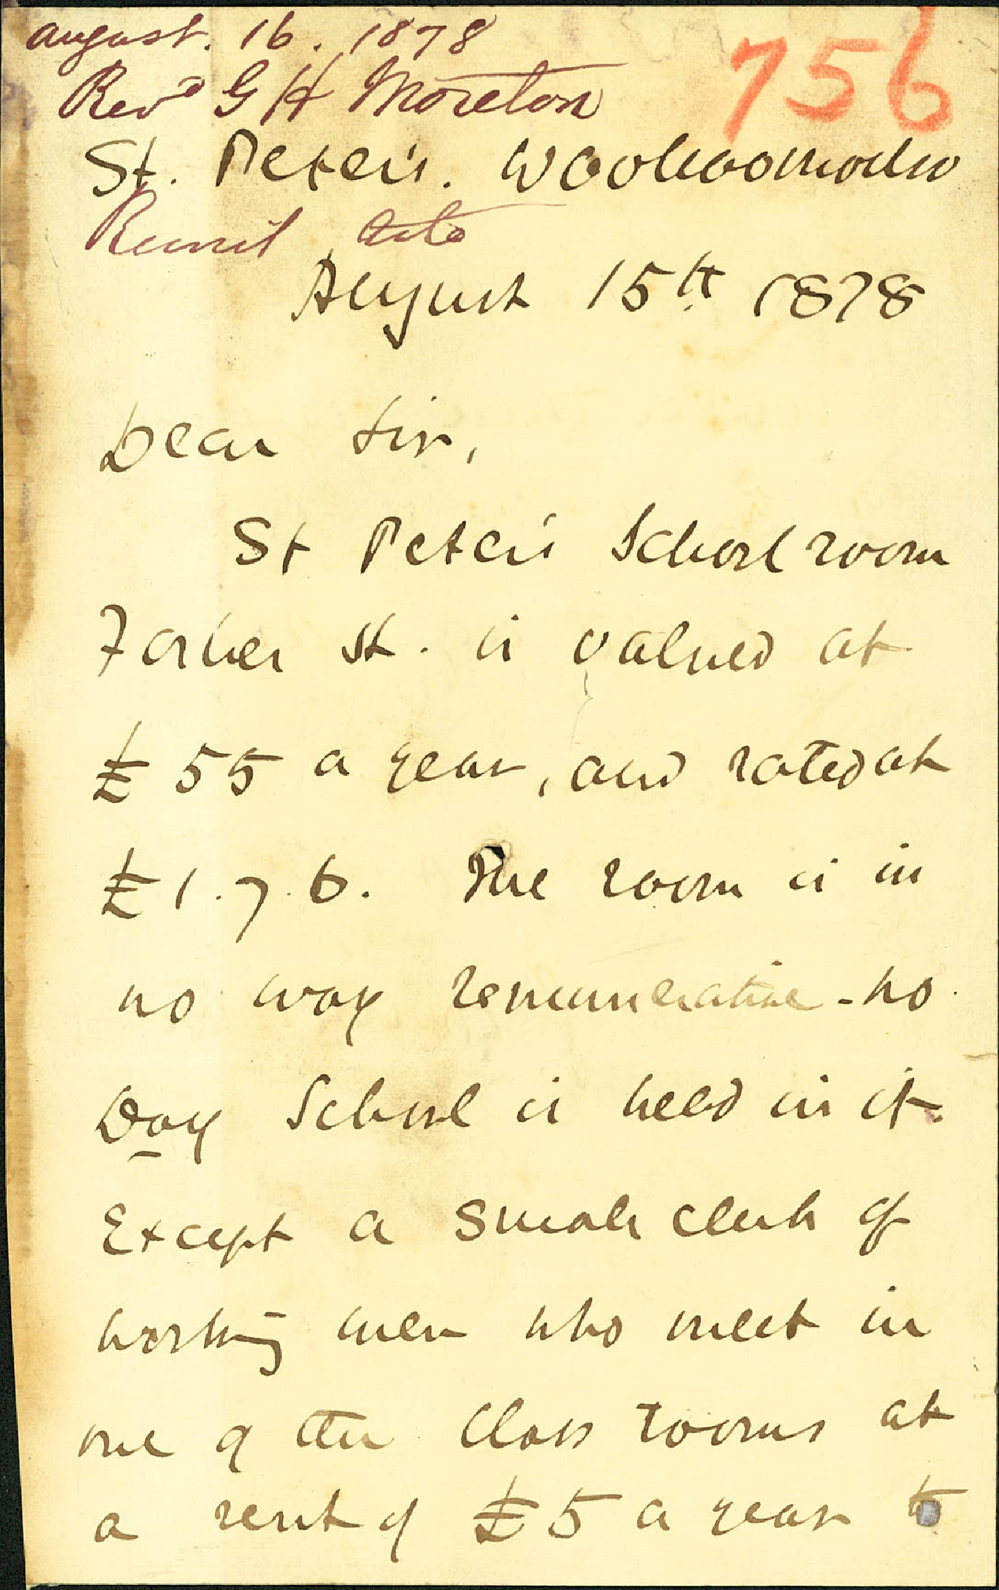 August. 16. 1878
756
Revd G H Moreton
St. Peter's. Woolloomooloo
Remit rate
August 15th 1878
Dear Sir,
St Peter's School room
Forbes St. is valued at
£55 a year, and rated at
£1.7.6. The room is in
no way remunerative - no
Day School is held in it.
Except a small club of
working men who meet in
one of the Class rooms at
a rent of £5 a year to